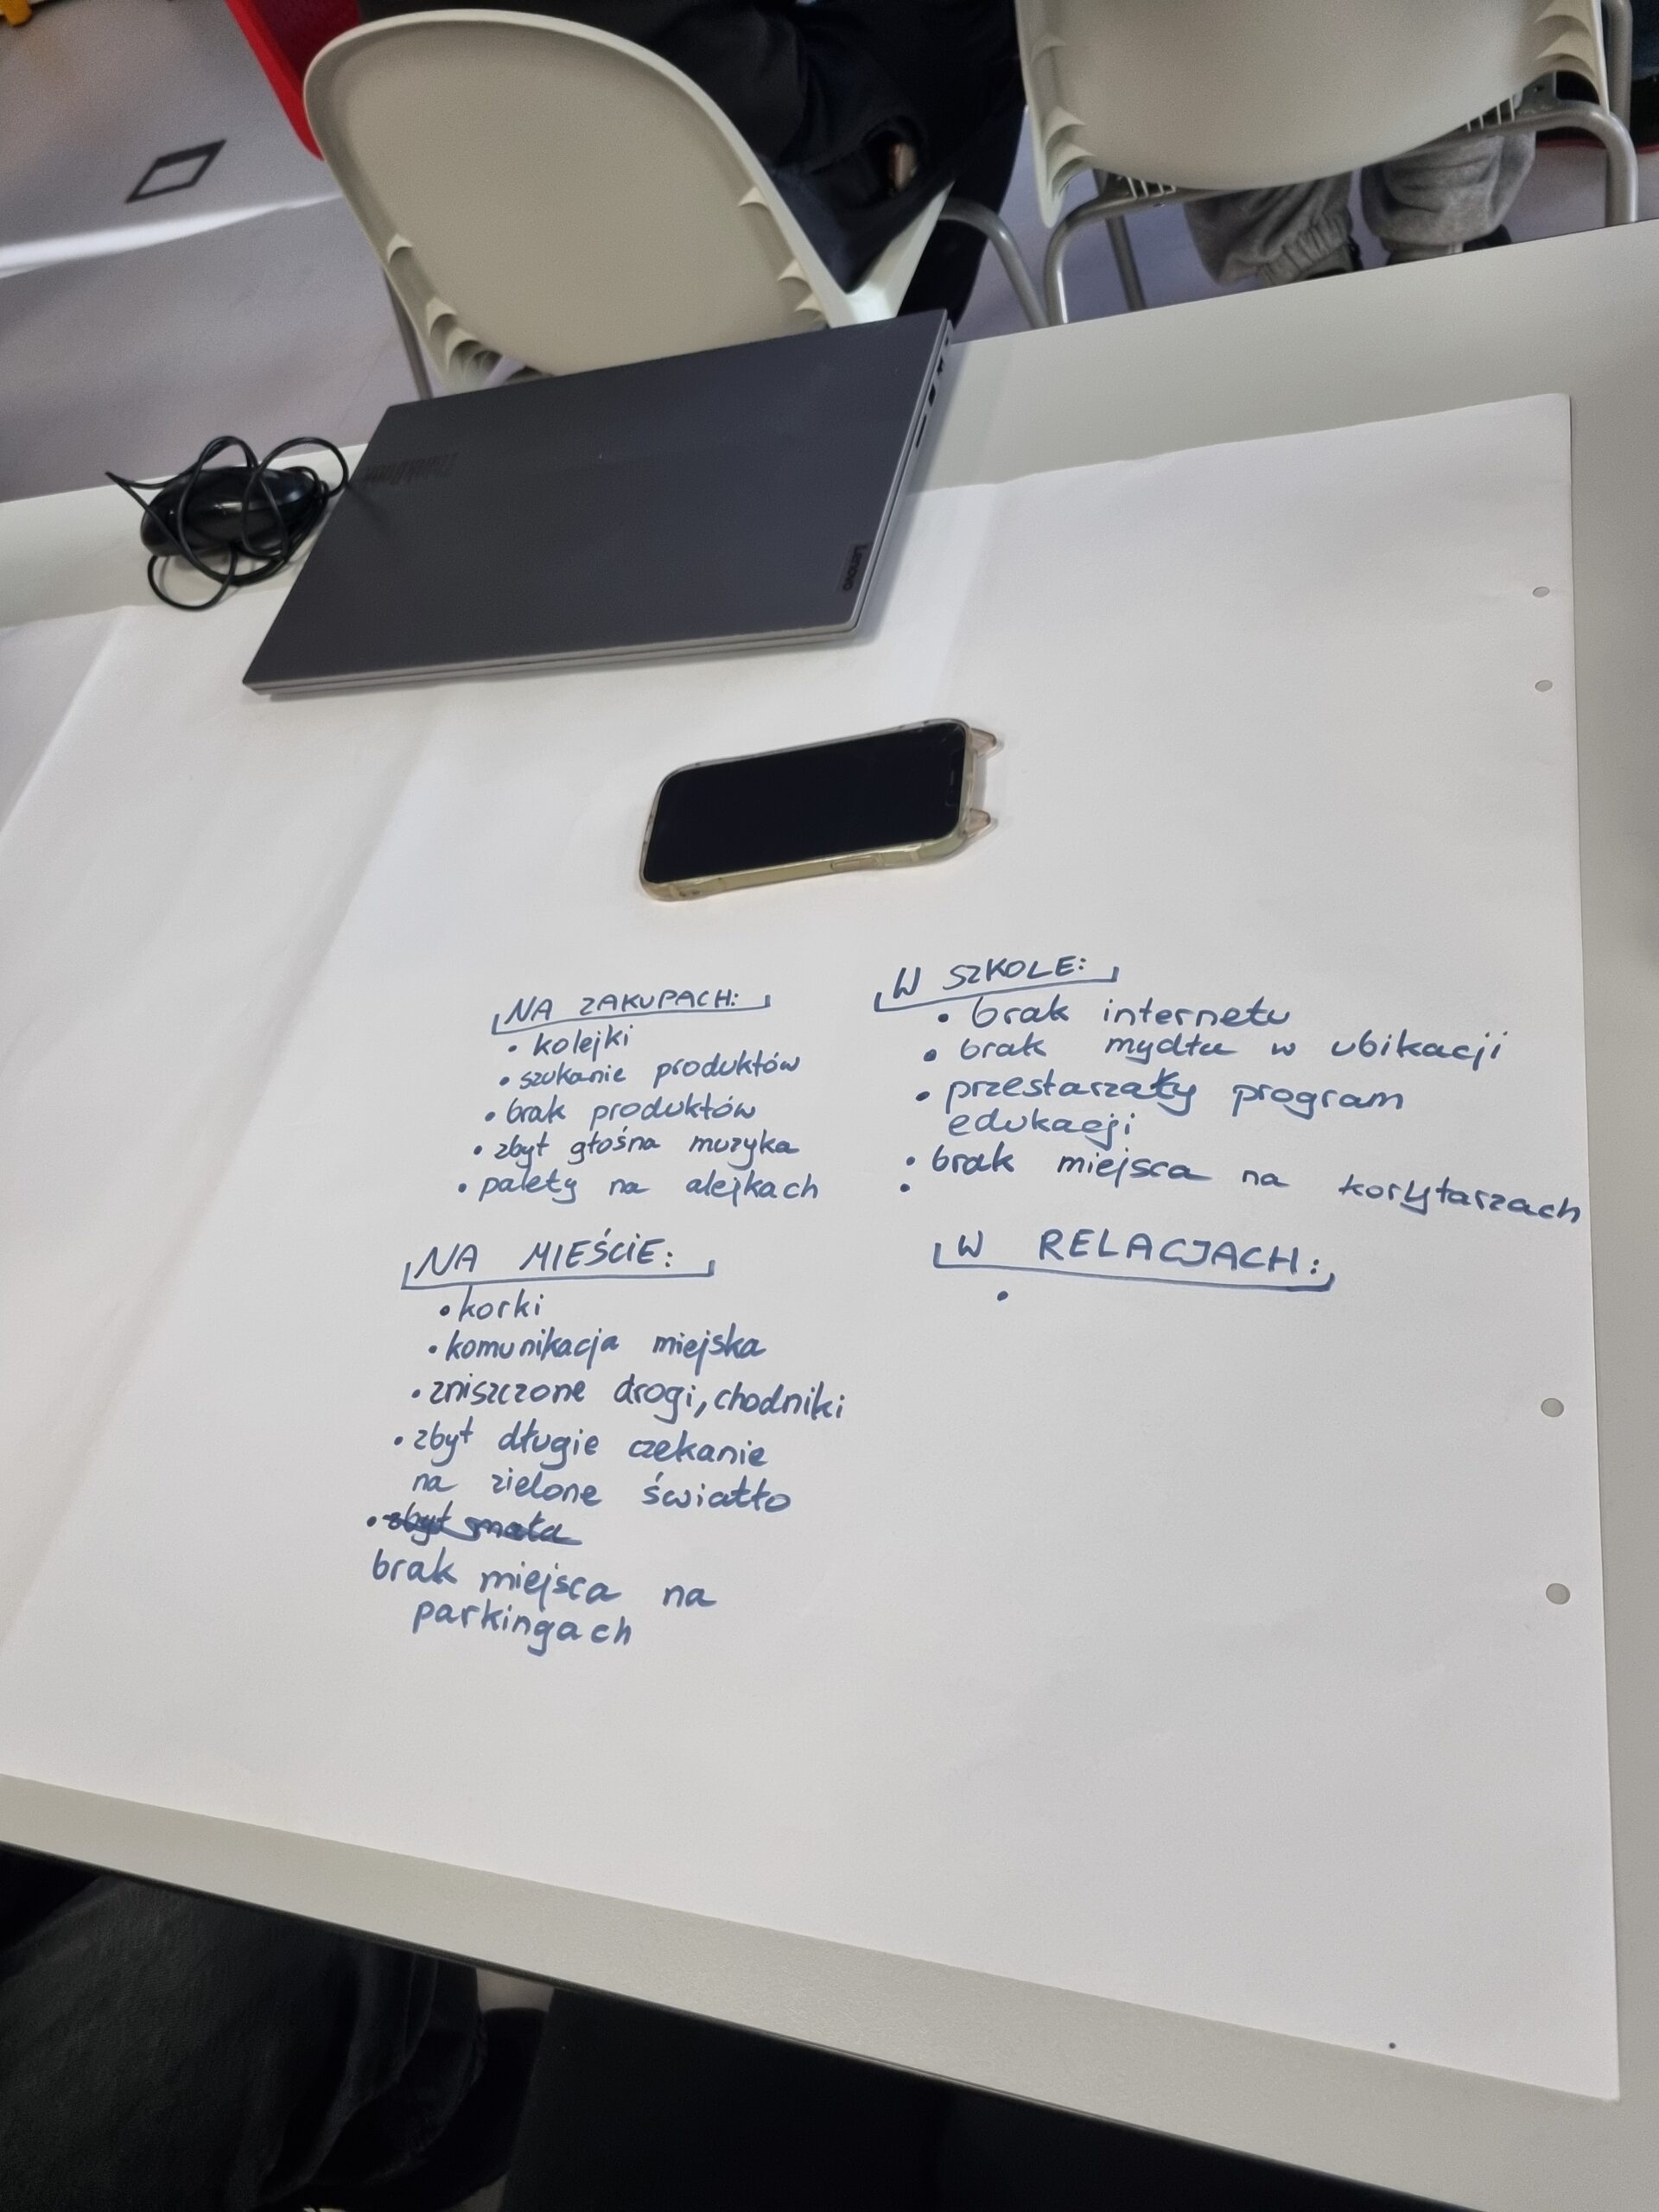 ThinkBook
Lenovo
NA ZAKUPACH:
• kolejki
• szukanie produktów
• brak produktów
• zbyt głośna muzyka
• palety na alejkach
W SZKOLE:
• brak internetu
• brak mydła w ubikacji
• przestarzały program
edukacji
• brak miejsca na korytarzach
•
NA MIEŚCIE:
• korki
• komunikacja miejska
• zniszczone drogi, chodniki
• zbyt długie czekanie
na zielone światło
• zbyt mała
brak miejsca na
parkingach
W RELACJACH:
•